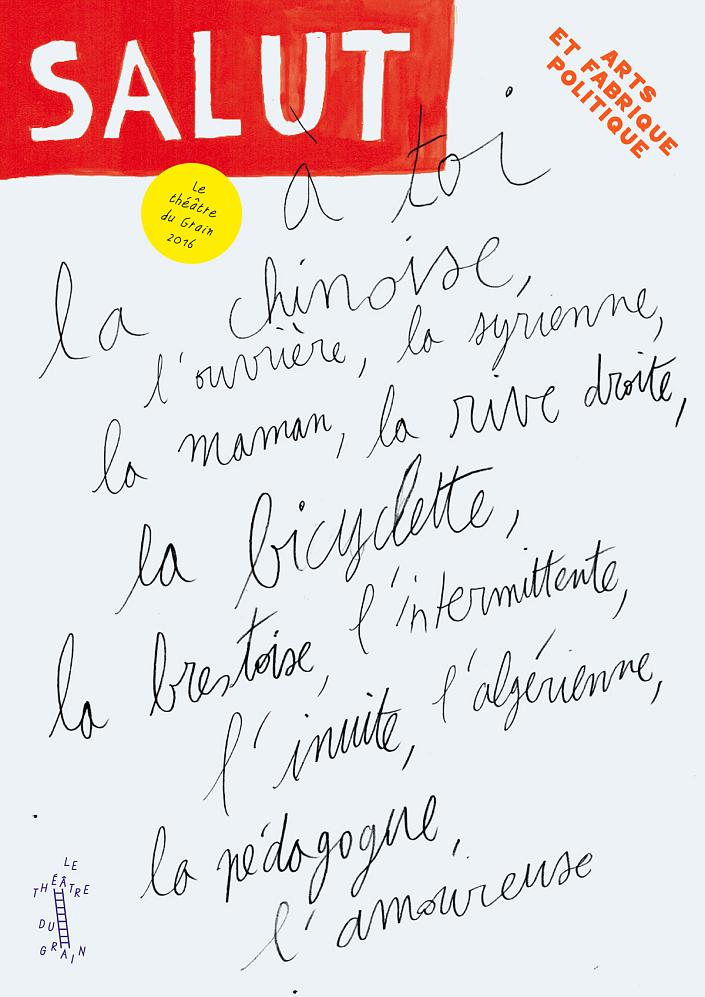 SALUT
ARTS
ET FABRIQUE
POLITIQUE
à toi
Le
théâtre
du Grain
2016
la chinoise,
l'ouvrière, la syrienne,
la maman, la rive droite,
la bicyclette,
la brestoise, l'intermittente,
l'inuite, l'algérienne,
la pédagogue,
l'amoureuse
LE
THÉÂTRE
DU
GRAIN